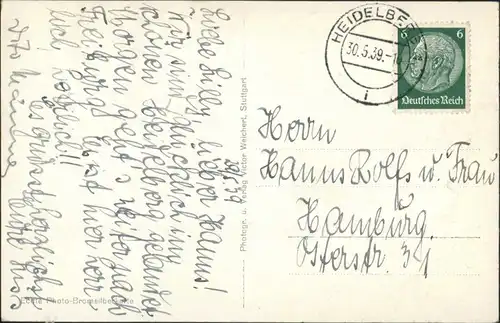 30/5.39
Liebe Lilly, lieber Hanns!
Wir sind glücklich im
schönen Heidelberg gelandet
Morgen geht's weiter nach
Freiburg. Es ist hier herr-
lich
Es grüßt herzlichst
Photogr. u. Verlag Victor Weichert, Stuttgart
Echte Photo-Bromsilberkarte
HEIDELBERG
30.5.39.-1
i
6 6
Deutsches Reich
Herrn
Hanns Rolfs u. Frau
Hamburg.
Osterstr. 31